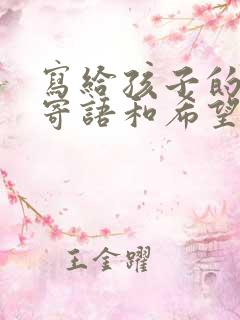 寫給孩子的
寄語和希望
王金躍